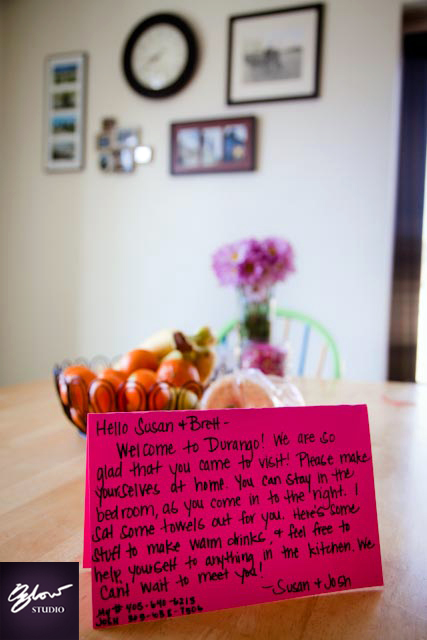 Hello Susan + Brett -
Welcome to Durango! We are so
glad that you came to visit! Please make
yourselves at home. You can stay in the
bedroom, as you come in to the right. I
sat some towels out for you. Here's some
stuff to make warm drinks, & feel free to
help yourself to anything in the kitchen. We
can't wait to meet you!
-Susan + Josh
My # 405-640-6213
Josh
Glow
STUDIO